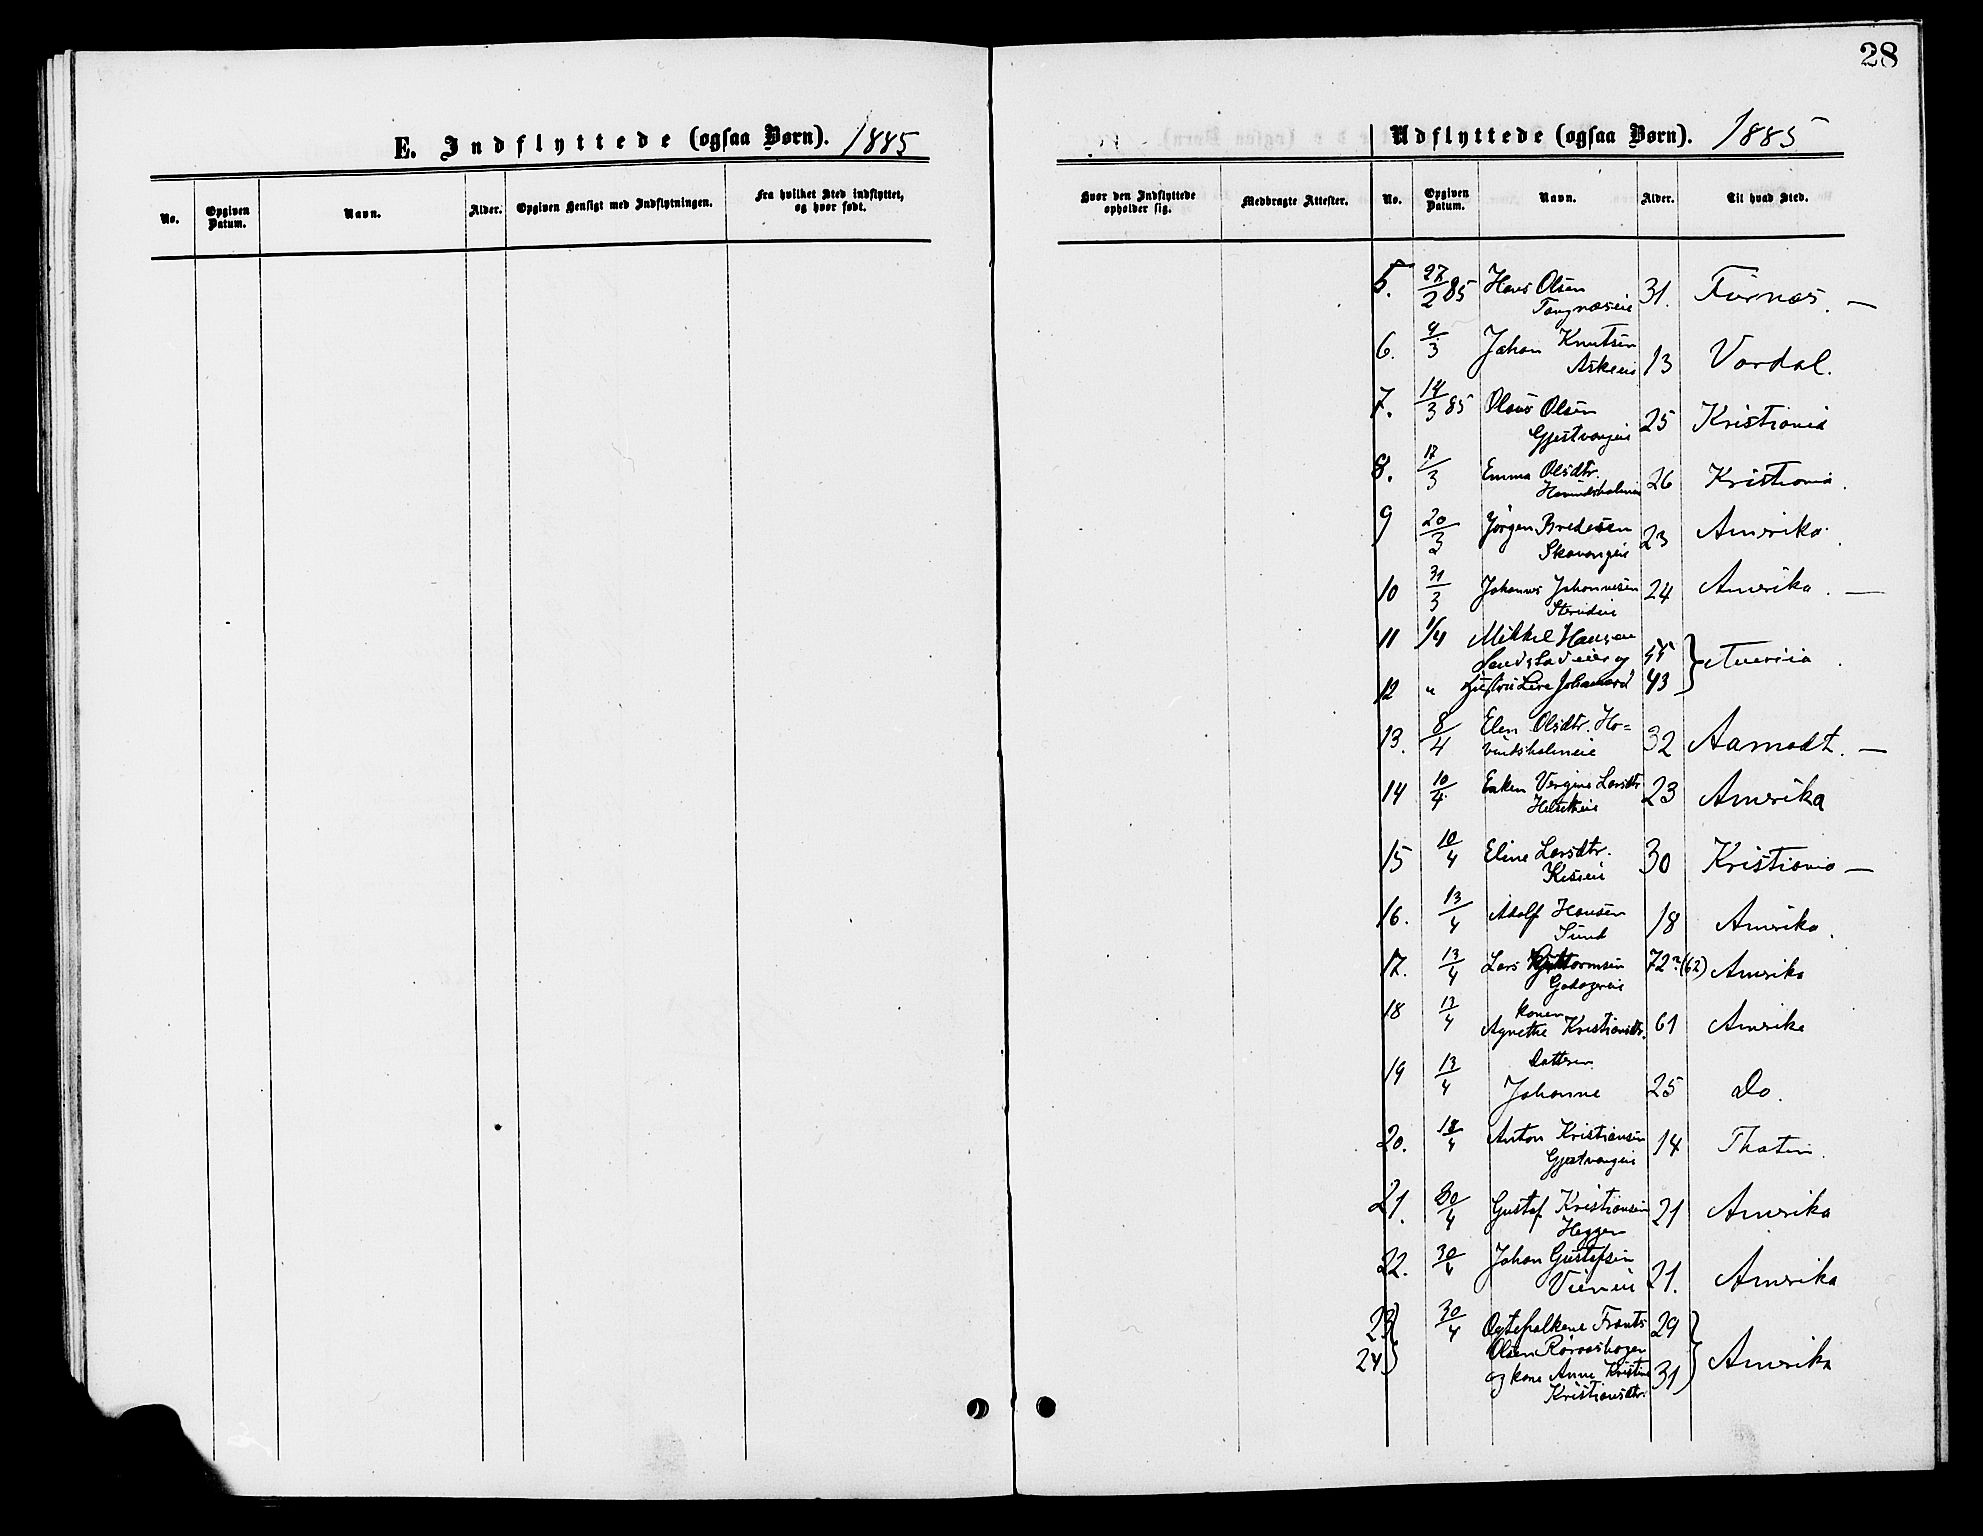 28
E. Indflyttede (ogsaa Børn). 1885
No. Opgiven Datum. Navn. Alder. Opgiven Hensigt med Indflytningen. Fra hvilket Sted indflyttet, og hvor født.
Udflyttede (ogsaa Børn). 1885
Hvor den Indflyttede opholder sig. Medbragte Attester. No. Opgiven Datum. Navn. Alder. Til hvad Sted.
5. 27/2 85 Hans Olsen 31. Furnæs. —
Tangnæseie
6. 4/3 Johan Knutsen 13 Vardal.
7. 14/3 85 Olaus Olsen 25 Kristiania
Gjestvangeie
8. 17/3 Emma Olsdtr. 26 Kristiania.
9 20/3 Jørgen Bredesen 23 Amerika.
Skavangeie
10 31/3 Johannes Johannesen 24 Amerika. —
11 1/4 Mikkel Hansen 55
12 " Hustru Johannesd 43
13. 8/4 Elen Olsdtr. Ho= 32 Aamodt. —
vindsholmeie
14 10/4 Larsdtr 23 Amerika
15 10/4 Eline Larsdtr. 30 Kristiania —
Kiseeie
16. 13/4 Adolf Hansen 18 Amerika.
Sund
17. 13/4 Lars Guttormsen 72?(62) Amerika
18 13/4 konen
Agnethe Kristiansdtr. 61 Amerika
19 13/4 Datteren
Johanne 25 Do.
20. 18/4 Anton Kristiansen 14
Gjestvangeie
21. 30/4 Gustaf Kristiansen 21 Amerika
Heggen
22. 30/4 Johan Gustafsen
21. Amerika
23 30/4 Ægtefolkene Frants 29
24 Olsen Amerika
og kone Anne Kristine 31
Kristiansdtr.